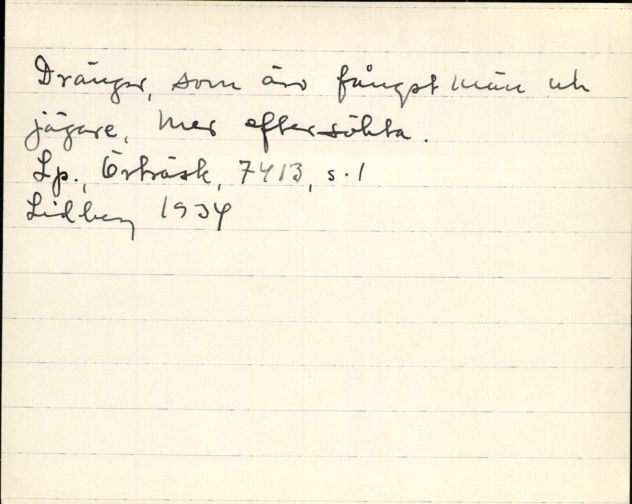 Drängar, som äro fångstmän och
jägare, mer eftersökta.
Lp., Örträsk, 7413, s. 1
Lidberg 1934